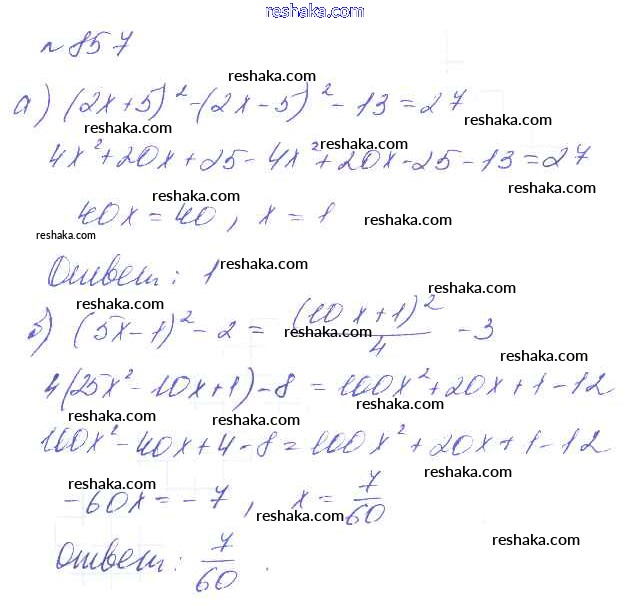 reshaka.com
№ 857
reshaka.com
а) (2x+5)² - (2x-5)² - 13 = 27
reshaka.com reshaka.com
reshaka.com
4x² + 20x + 25 - 4x² + 20x - 25 - 13 = 27
reshaka.com reshaka.com
40x = 40, x = 1
reshaka.com reshaka.com
Ответ: 1
reshaka.com
reshaka.com reshaka.com
б) (5x-1)² - 2 = (10x+1)²/4 - 3
reshaka.com
4(25x² - 10x + 1) - 8 = 100x² + 20x + 1 - 12
reshaka.com reshaka.com
100x² - 40x + 4 - 8 = 100x² + 20x + 1 - 12
reshaka.com reshaka.com
-60x = -7, x = 7/60
reshaka.com reshaka.com
reshaka.com
Ответ: 7/60.
reshaka.com reshaka.com